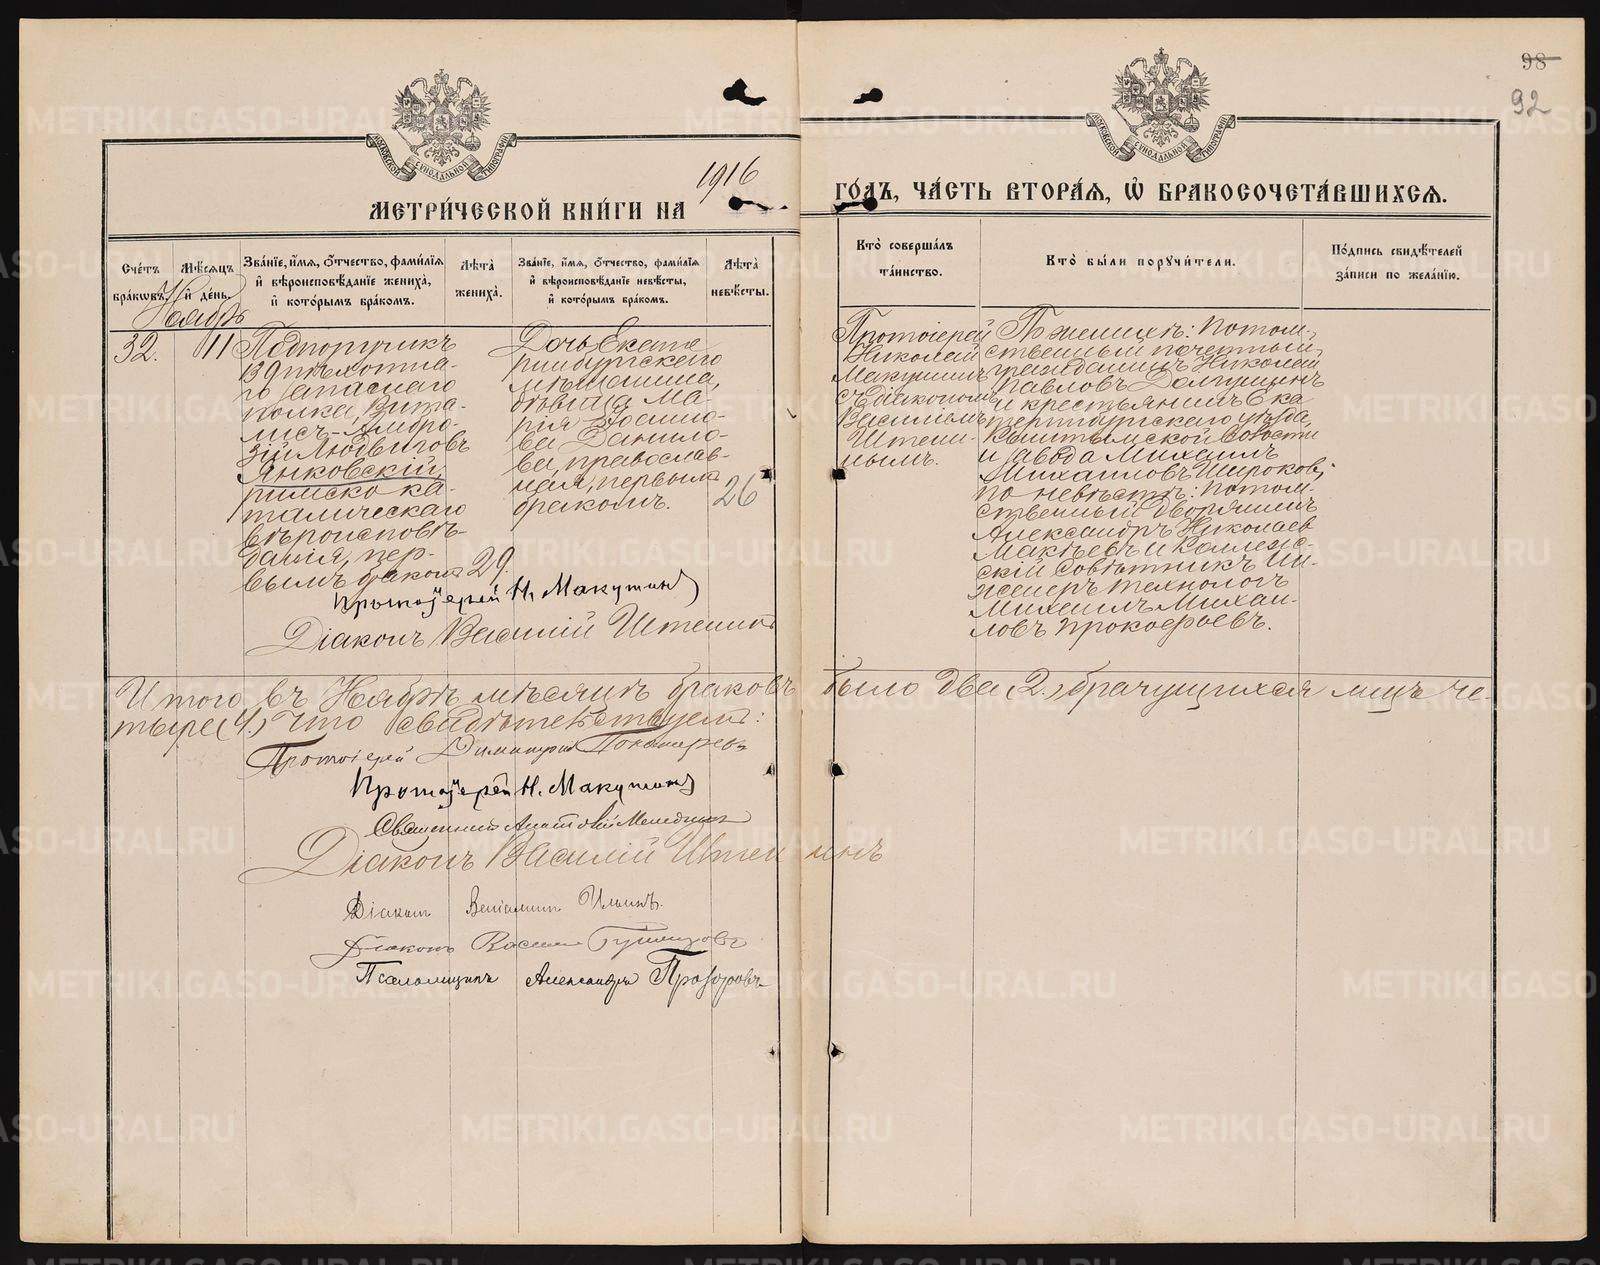 98
92
МОСКОВСКОЙ СѴНОДАЛЬНОЙ ТИПОГРАФІИ
МОСКОВСКОЙ СѴНОДАЛЬНОЙ ТИПОГРАФІИ
МЕТРИ́ЧЕСКОЙ КНИ́ГИ НА 1916 ГО́ДЪ, ЧА́СТЬ ВТОРА́Я, Ѡ҆ БРАКОСОЧЕТА́ВШИХСЯ.
Сче́тъ бра́кѡвъ.
Мѣ́сяцъ и҆ де́нь.
Зва́нїе, и҆́мя, ѻ҆́тчество, фами́лїя и҆ вѣроисповѣ́данїе жениха̀, и҆ кото́рымъ бра́комъ.
Лѣ́та жениха̀.
Зва́нїе, и҆́мя, ѻ҆́тчество, фами́лїя и҆ вѣроисповѣ́данїе невѣ́сты, и҆ кото́рымъ бра́комъ.
Лѣ́та невѣ́сты.
Кто̀ соверша́лъ та́инство.
Кто̀ бы́ли поручи́тели.
По́дпись свидѣ́телей за́писи по жела́нїю.
Ноябрь
32.
11
Подпоручикъ
139 пѣхотна-
го запаснаго
полка, Вита-
лисъ-Амвро-
зій Людвиговъ
Янковскій,
римско ка-
таличeскаго
вѣроисповѣ-
данія, пер-
вымъ бракомъ
29.
Дочь Екате
ринбургскаго
мѣщанина,
дѣвица Ма-
рія Васильe-
ва Данило-
ва, православ-
ная, первымъ
бракомъ.
26
Протоіерей
Николай
Макушинъ
съ діакономъ
Василіемъ
Штени-
нымъ.
По женихѣ: потом-
ственный почетный
гражданинъ Николай
Павловъ Долгушинъ
и крестьянинъ Ека
теринбургскаго уѣзда,
Кыштымской волости
и завода Михаилъ
Михаиловъ Широковъ;
по невѣстѣ: потом-
ственный дворянинъ
Александръ Николаев
Макѣевъ и Коллеж-
скій совѣтникъ Ин-
женеръ технологъ
Михаилъ Михаи-
ловъ Прокофьевъ.
Протоіерей Н. Макушинъ
Діаконъ Василій Штенинъ
Итого въ Ноябрѣ мѣсяцѣ браковъ было два (2.) брачущихся лицъ че-
тыре (4.) Что свидѣтельствуемъ:
Протоіерей Димитрій
Протоіерей Н. Макушинъ
Священникъ
Діаконъ Василій Штенинъ
Діаконъ Веніаминъ Ильинъ.
Діаконъ Василій
Псаломщикъ Александръ Прозоровъ
METRIKI.GASO-URAL.RU